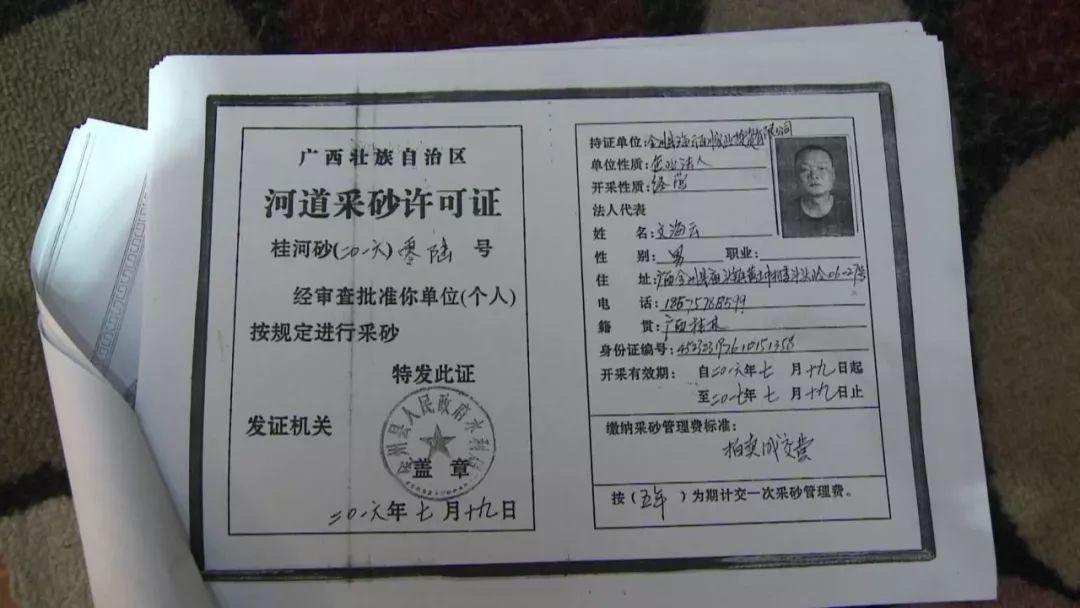 广西壮族自治区
河道采砂许可证
桂河砂(二〇一六)零陆 号
经审查批准你单位(个人)
按规定进行采砂
特发此证
发证机关
州县人民政府水利
盖章
二〇一六年七月十九日
持证单位:全州县海云 有限公司
单位性质:企业法人
开采性质:经营
法人代表
姓 名:文海云
性 别:男 职业:
住 址:广西全州县 06-27号
电 话:18575768599
籍 贯:广西桂林
身份证编号:
开采有效期: 自二〇一六年七月十九日起
至二〇一七年七月十九日止
缴纳采砂管理费标准:
拍卖成交营
按(五年)为期计交一次采砂管理费。